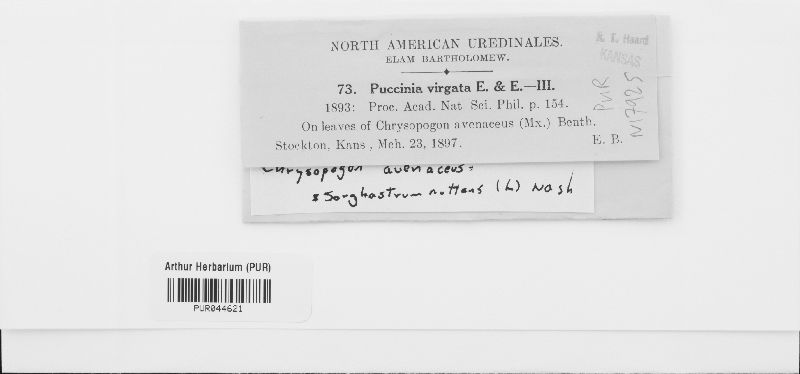 NORTH AMERICAN UREDINALES.
ELAM BARTHOLOMEW.
73. Puccinia virgata E. & E.—III.
1893: Proc. Acad. Nat Sci. Phil. p. 154.
On leaves of Chrysopogon avenaceus (Mx.) Benth.
Stockton, Kans , Mch. 23, 1897.
E. B.
KANSAS
PUR
N17925
Chrysopogon avenaceus
Sorghastrum nuttans (L) Nash
Arthur Herbarium (PUR)
PUR044621